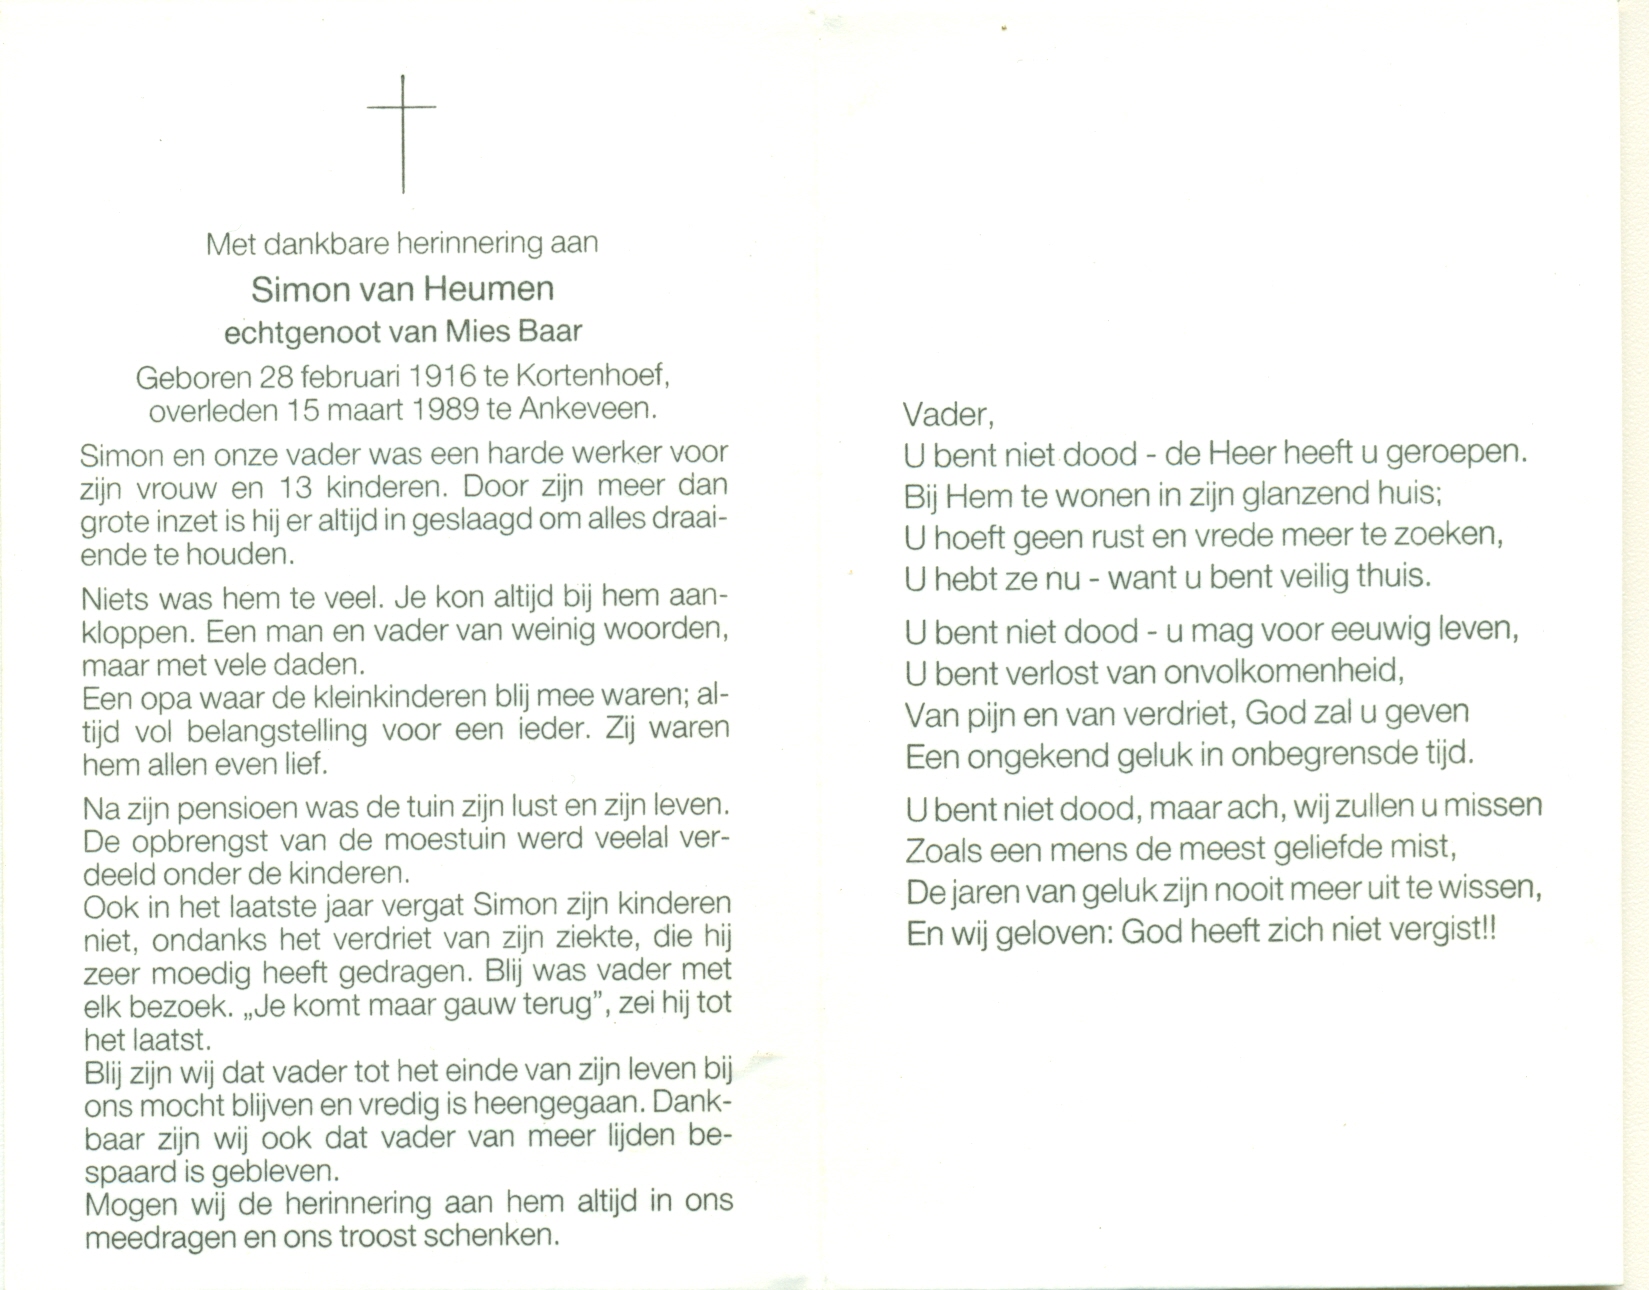 Met dankbare herinnering aan
Simon van Heumen
echtgenoot van Mies Baar
Geboren 28 februari 1916 te Kortenhoef,
overleden 15 maart 1989 te Ankeveen.
Simon en onze vader was een harde werker voor
zijn vrouw en 13 kinderen. Door zijn meer dan
grote inzet is hij er altijd in geslaagd om alles draai-
ende te houden.
Niets was hem te veel. Je kon altijd bij hem aan-
kloppen. Een man en vader van weinig woorden,
maar met vele daden.
Een opa waar de kleinkinderen blij mee waren; al-
tijd vol belangstelling voor een ieder. Zij waren
hem allen even lief.
Na zijn pensioen was de tuin zijn lust en zijn leven.
De opbrengst van de moestuin werd veelal ver-
deeld onder de kinderen.
Ook in het laatste jaar vergat Simon zijn kinderen
niet, ondanks het verdriet van zijn ziekte, die hij
zeer moedig heeft gedragen. Blij was vader met
elk bezoek. „Je komt maar gauw terug”, zei hij tot
het laatst.
Blij zijn wij dat vader tot het einde van zijn leven bij
ons mocht blijven en vredig is heengegaan. Dank-
baar zijn wij ook dat vader van meer lijden be-
spaard is gebleven.
Mogen wij de herinnering aan hem altijd in ons
meedragen en ons troost schenken.
Vader,
U bent niet dood - de Heer heeft u geroepen.
Bij Hem te wonen in zijn glanzend huis;
U hoeft geen rust en vrede meer te zoeken,
U hebt ze nu - want u bent veilig thuis.
U bent niet dood - u mag voor eeuwig leven,
U bent verlost van onvolkomenheid,
Van pijn en van verdriet, God zal u geven
Een ongekend geluk in onbegrensde tijd.
U bent niet dood, maar ach, wij zullen u missen
Zoals een mens de meest geliefde mist,
De jaren van geluk zijn nooit meer uit te wissen,
En wij geloven: God heeft zich niet vergist!!